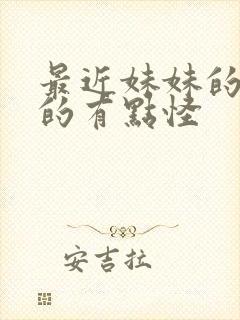 最近妹妹的
的有點怪
安吉拉